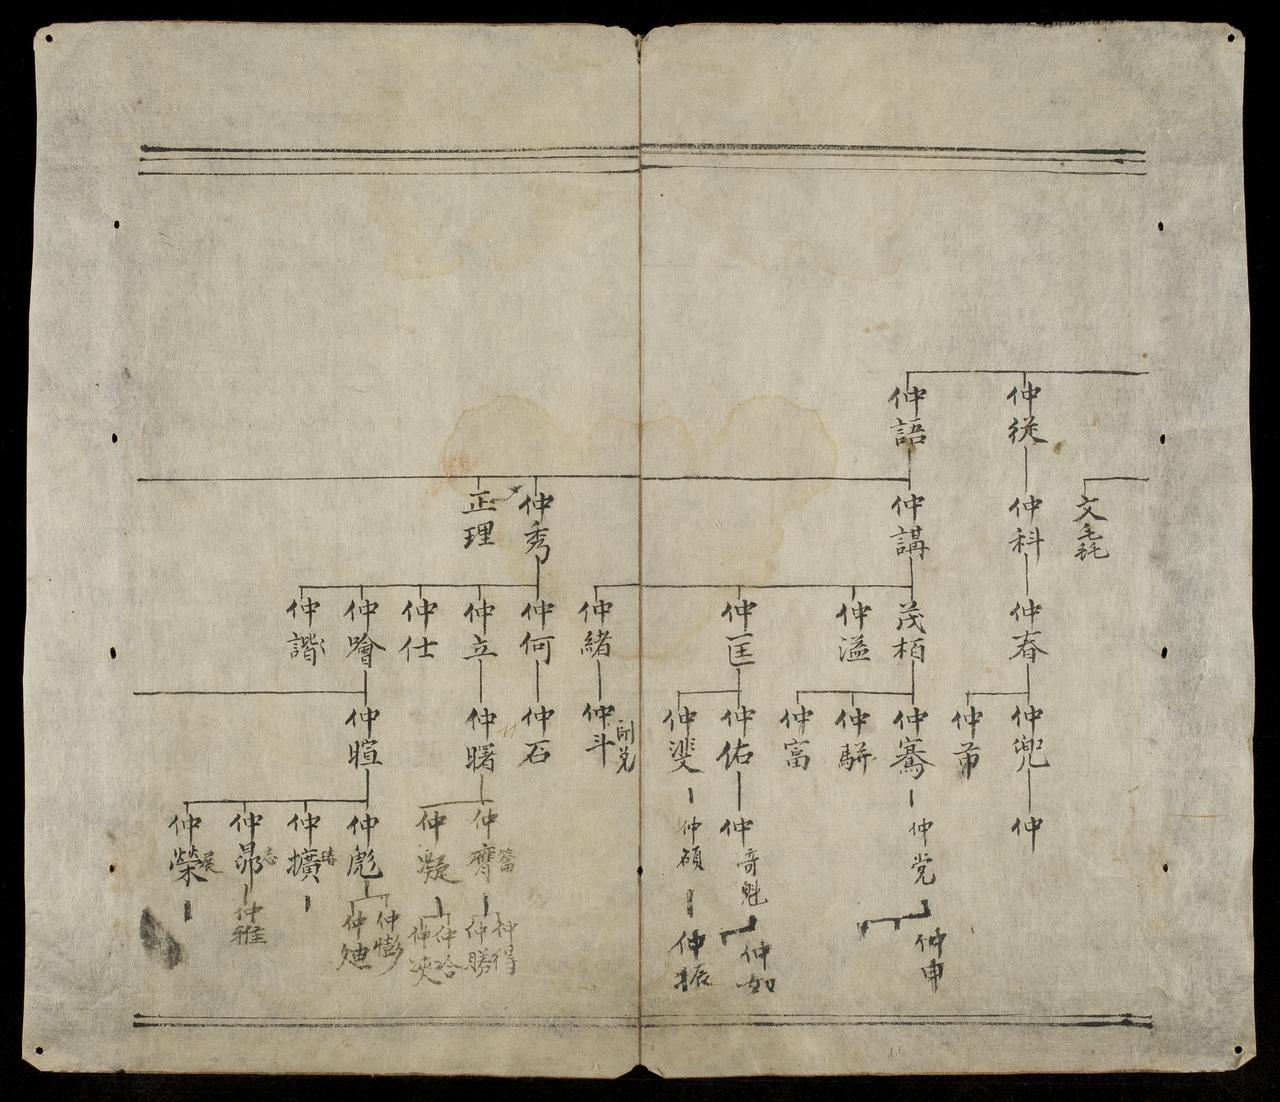 仲從
仲語
文
仲科
仲講
仲秀
正理
仲春
茂栢
仲溢
仲匡
仲緒
仲何
仲立
仲仕
仲噲
仲諧
仲兜
仲芾
仲騫
仲駢
仲富
仲佑
仲斐
仲斗
仲石
仲曙
仲暄
仲
仲党
仲奇魁
仲碩
仲膺
仲凝
仲彪
仲擴
仲昴 志
仲榮 展
仲申
仲如
仲振
仲得
仲勝
仲哈
仲浹
仲
仲
仲雅